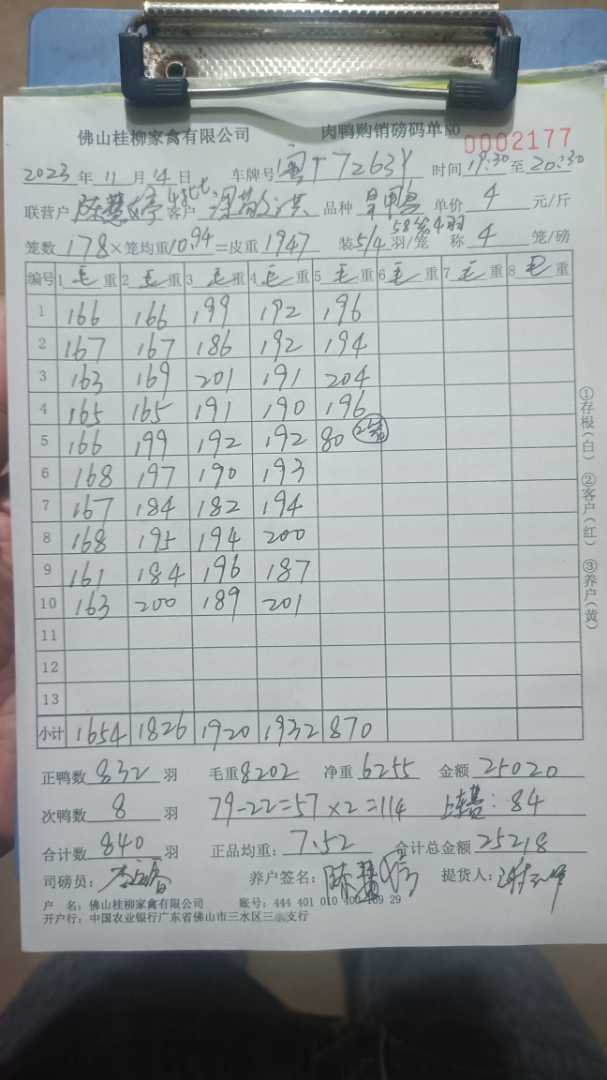 佛山桂柳家禽有限公司 肉鸭购销磅码单 NO 0002177
2023 年 11 月 14 日 车牌号 时间 19:30 至 20:30
联营户 陈慧婷 客户 品种 单价 4 元/斤
58笼4羽
笼数 178 × 笼均重 10.94 = 皮重 1947 装 5/4 羽/笼 称 4 笼/磅
编号 1 毛 重 2 毛 重 3 毛 重 4 毛 重 5 毛 重 6 毛 重 7 毛 重 8 毛 重
1 166 166 199 192 196
2 167 167 186 192 194
3 163 169 201 191 204
4 165 165 191 190 196
5 166 199 192 192 80 2笼
6 168 197 190 193
7 167 184 182 194
8 168 195 194 200
9 161 184 196 187
10 163 200 189 201
11
12
13
小计 1654 1826 1920 1932 870
正鸭数 832 羽 毛重 8202 净重 6255 金额 25020
次鸭数 8 羽 79-22=57×2=114 : 84
合计数 840 羽 正品均重: 7.52 合计总金额 25218
司磅员: 养户签名: 陈慧婷 提货人:
户 名: 佛山桂柳家禽有限公司 账号: 444 401 010 400 169 29
开户行: 中国农业银行广东省佛山市三水区三水支行
①存根(白) ②客户(红) ③养户(黄)